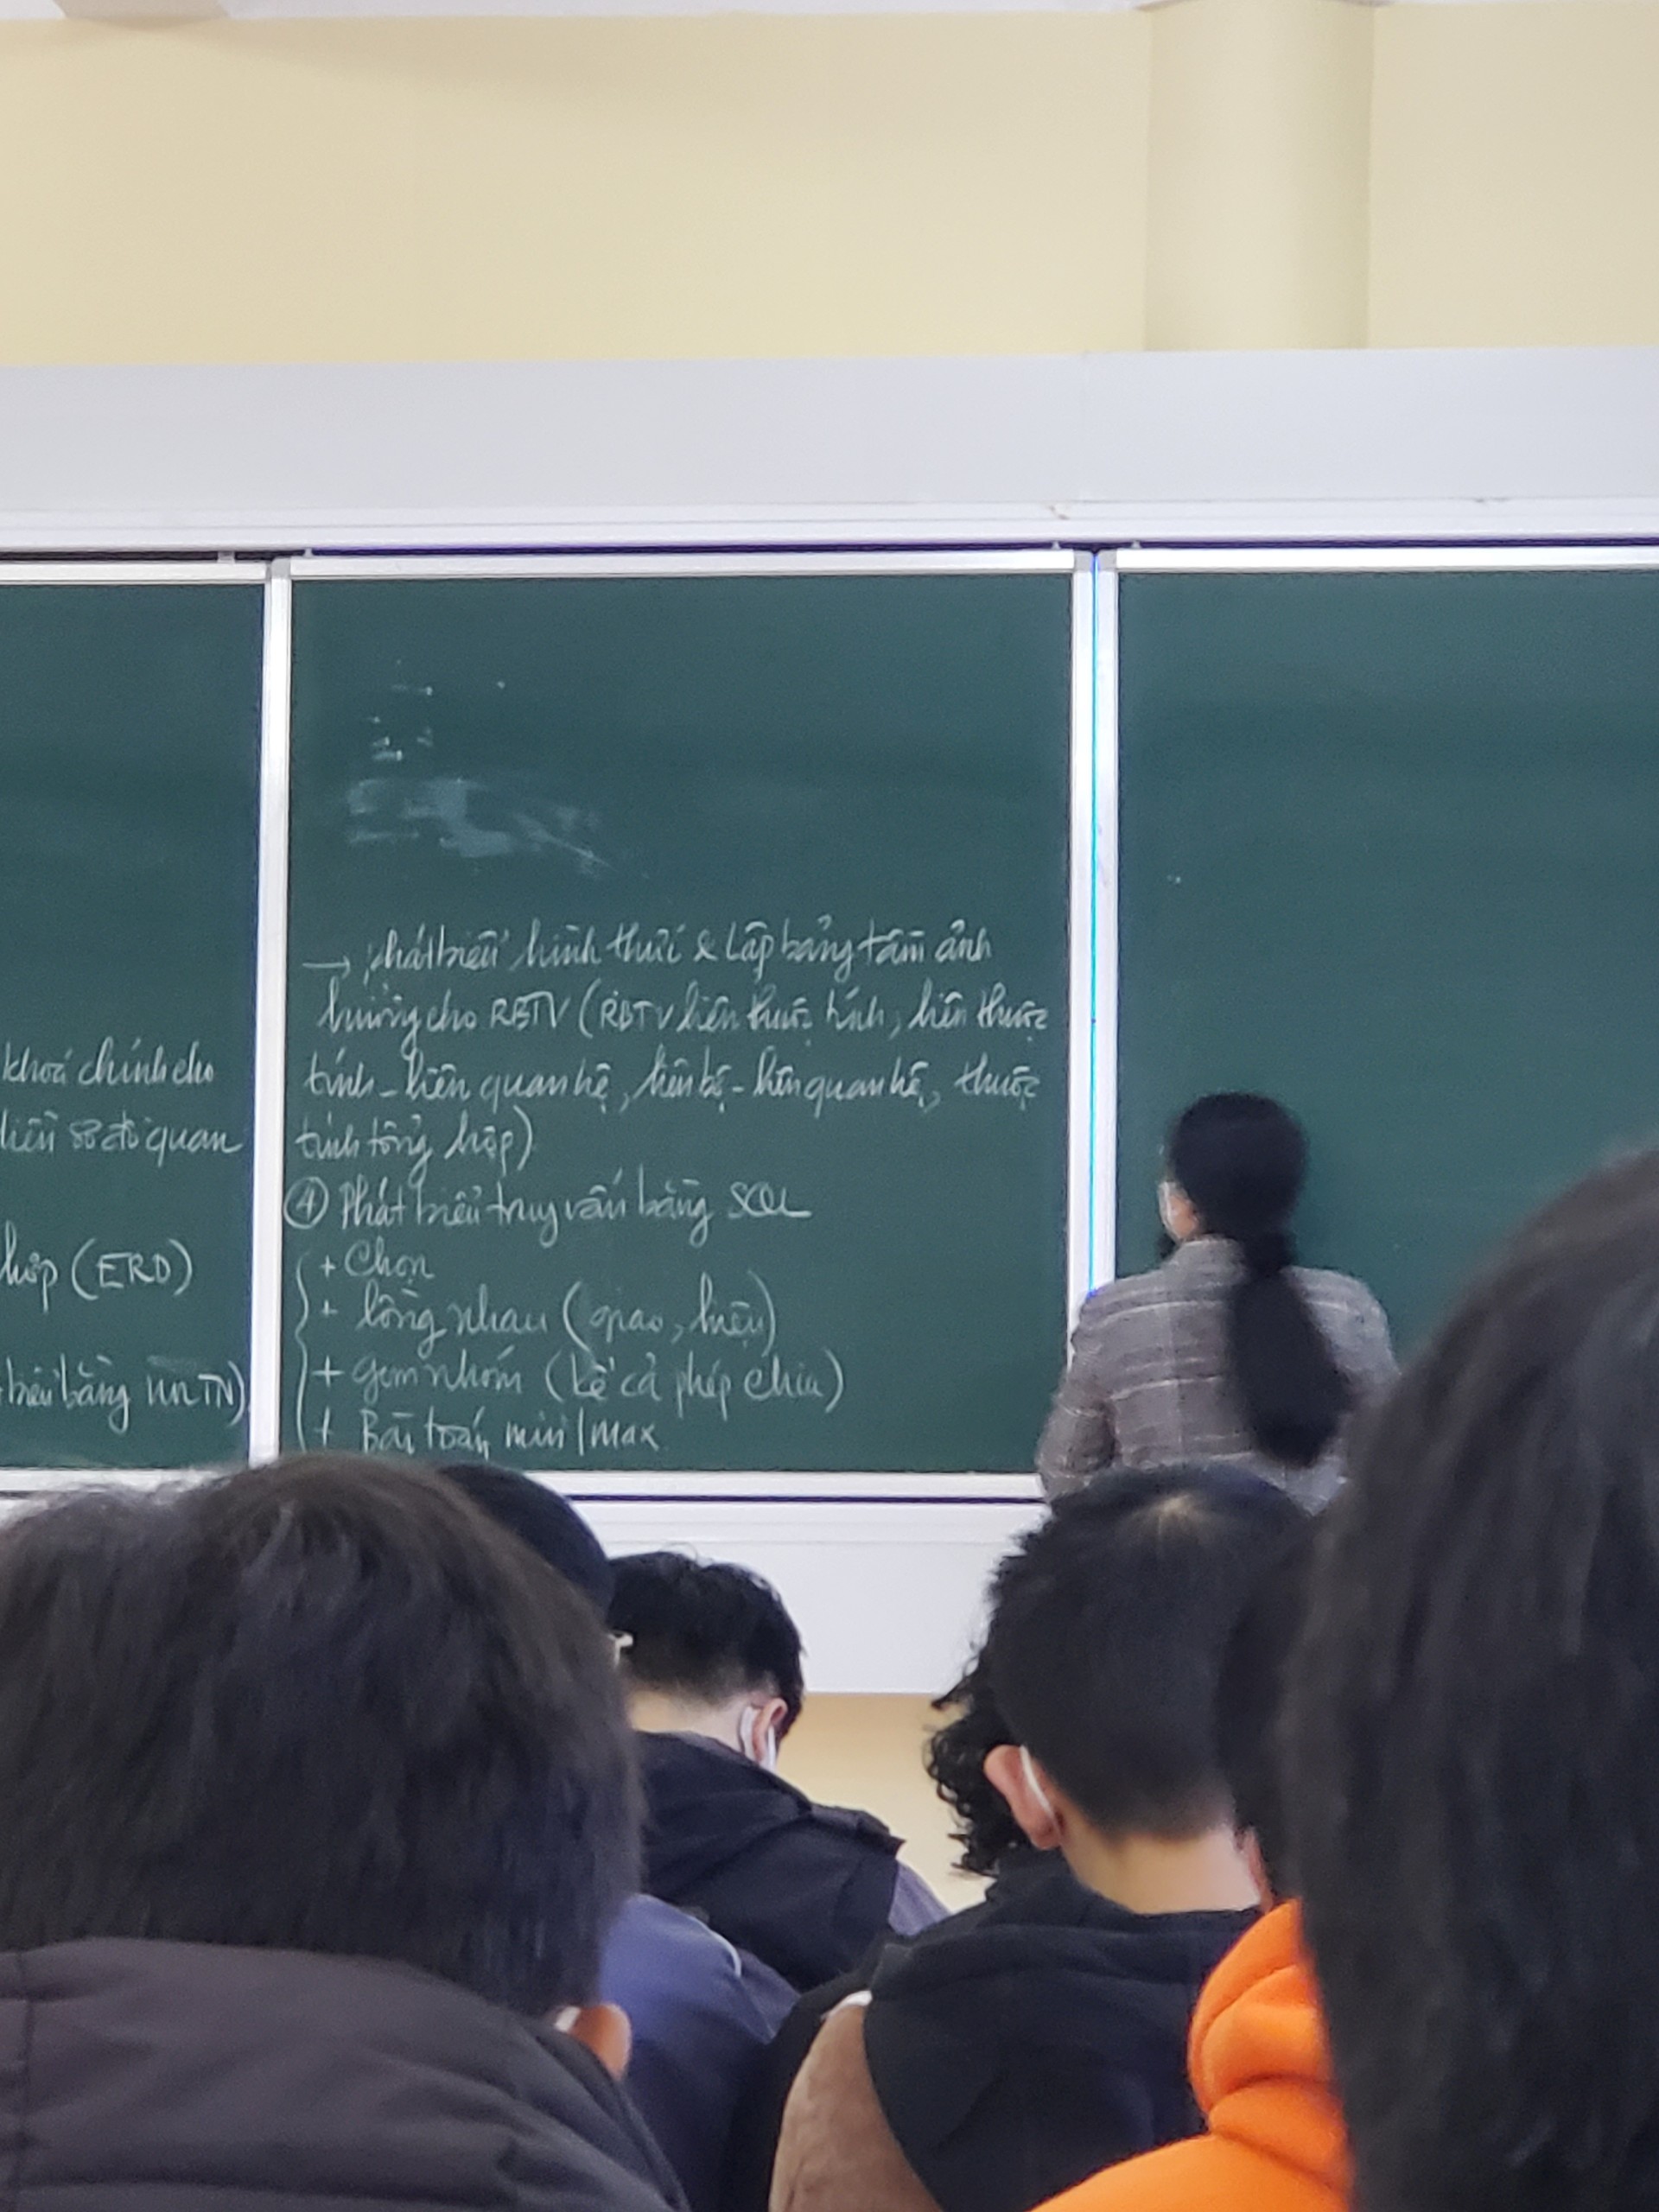 khoá chính cho
sơ đồ quan
hợp (ERD)
bằng NNTN)
→ phát biểu hình thức & Lập bảng tầm ảnh
hưởng cho RBTV (RBTV liên thuộc tính, liên thuộc
tính - liên quan hệ, liên bộ - liên quan hệ, thuộc
tính tổng hợp)
④ Phát biểu truy vấn bằng SQL
+ Chọn
+ lồng nhau (giao, hiệu)
+ gom nhóm (kể cả phép chia)
+ Bài toán min/max